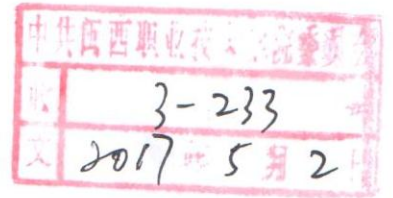 中共匠西职业技术学院委员会
收 3-233
文 2017年5月2日